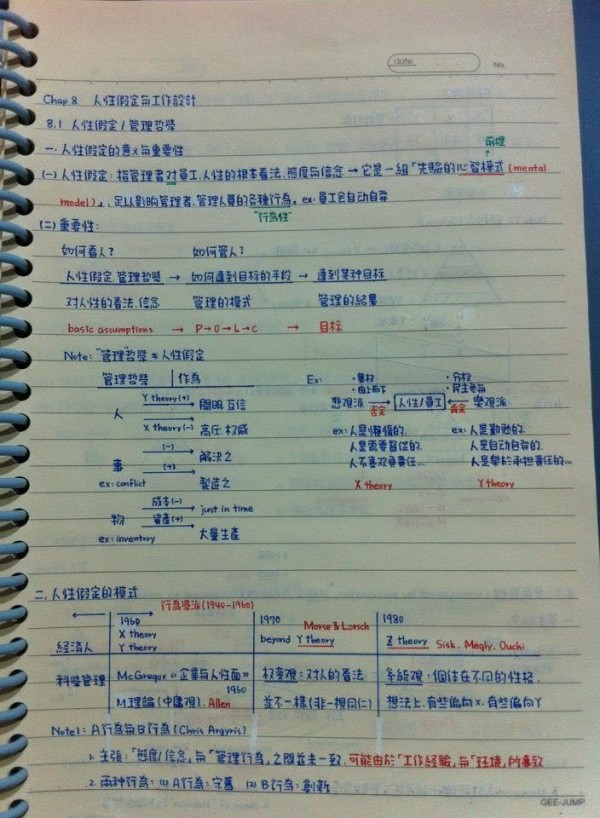 date.
No
Chap 8. 人性假定與工作設計
8.1 人性假定/管理哲學
一. 人性假定的意义與重要性
前提
(一) 人性假定: 指管理者對員工.人性的根本看法.態度與信念 → 它是一組「先驗的心智模式 (mental
model)」, 足以影响管理者.管理人員的各種行為。ex: 員工会自动自發
"行為性"
(二) 重要性:
如何看人? 如何管人?
人性假定.管理哲學 → 如何達到目标的手段 → 達到某种目标
对人性的看法.信念 管理的模式 管理的結果
basic assumptions → P→O→L→C → 目标
Note: "管理"哲學 ≠ 人性假定
管理哲學 作為
人 Y theory (+) 開明.互信
X theory (-) 高压.权威
事 (-) 解決之
(+) 製造之
ex: conflict
物 成本(-) just in time
資產(+) 大量生產
ex: inventory
Ex: ·集权 ·分权
·由上而下 ·民主參與
悲观派 否定 人性/員工 肯定 樂观派
ex: 人是懶惰的. ex: 人是勤勉的.
人是需要督促的. 人是自动自發的.
人不喜欢負責任... 人是樂於承担責任的...
X theory Y theory
二. 人性假定的模式
行為學派 (1940-1960)
經濟人 1960 1970 Morse & Lorsch 1980
X theory beyond Y theory Z theory Sisk, Megly, Ouchi
Y theory
科學管理 McGregor《企業的人性面》 权变观: 对人的看法 系統观: 個体在不同的性格.
1960
M理論 (中庸观). Allen 並不一樣 (非一視同仁) 想法上.有些偏向X.有些偏向Y
Note1: A行為與B行為 (Chris Argyris)
1. 主張:「態度/信念」與「管理行為」之間並未一致. 可能由於「工作經驗」與「环境」所導致
2. 兩种行為: (1) A行為: 守舊 (2) B行為: 創新
GEE-JUMP